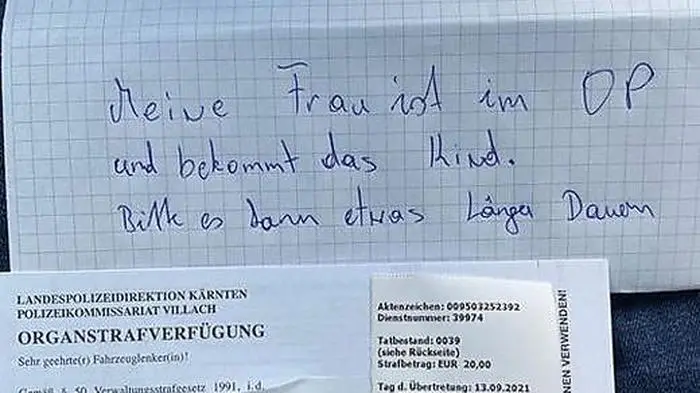 Meine Frau ist im OP
und bekommt das Kind.
Bitte es kann etwas Länger Dauern
LANDESPOLIZEIDIREKTION KÄRNTEN
POLIZEIKOMMISSARIAT VILLACH
ORGANSTRAFVERFÜGUNG
Sehr geehrte(r) Fahrzeuglenker(in)!
Gemäß § 50 Verwaltungsstrafgesetz 1991, i.d.
Aktenzeichen: 009503252392
Dienstnummer: 39974
Tatbestand: 0039
(siehe Rückseite)
Strafbetrag: EUR 20,00
Tag d. Übertretung: 13.09.2021
NEN VERWENDEN!